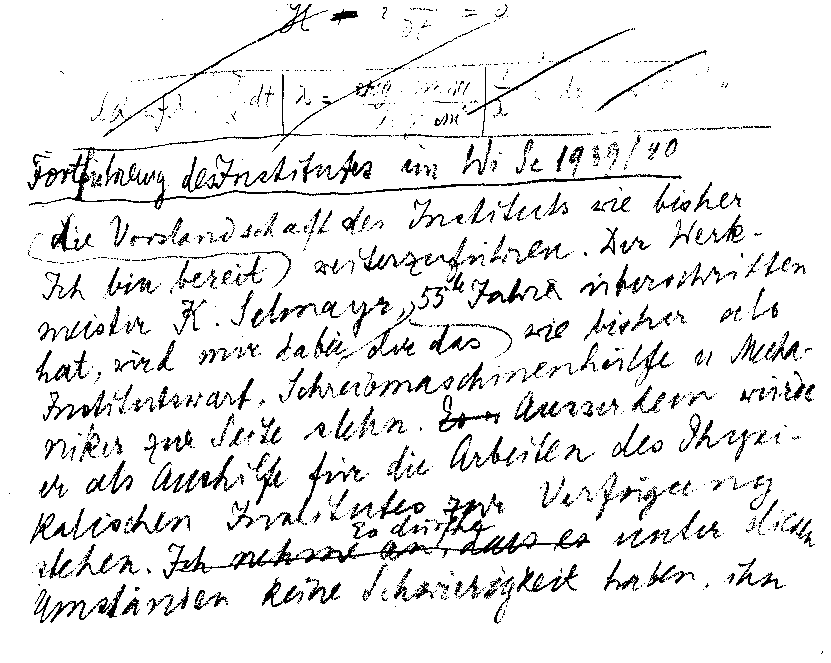 Fortführung des Institutes im Wi Se 1939/40
die Vorstandschaft des Instituts wie bisher
Ich bin bereit weiterzuführen. Der Werk-
meister K. Selmayr, 55te Jahre überschritten
hat, wird mir dabei der das wie bisher als
Institutswart, Schreibmaschinenhilfe u Mecha-
niker zur Seite stehn. Es Ausserdem würde
er als Aushilfe für die Arbeiten des Physi-
kalischen Institutes zur Verfügung
Es dürfte
stehen. Ich nehme an, dass es unter diesen
Umständen keine Schwierigkeit haben, ihn